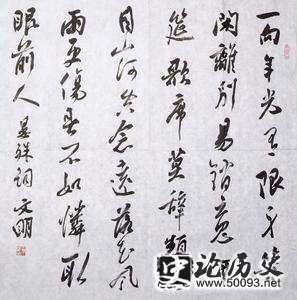 一向年光有限身等
閑離別易銷魂酒
筵歌席莫辭頻滿
目山河空念遠落花風
雨更傷春不如憐取
眼前人 晏殊詞 文明
论历史
www.50093.net